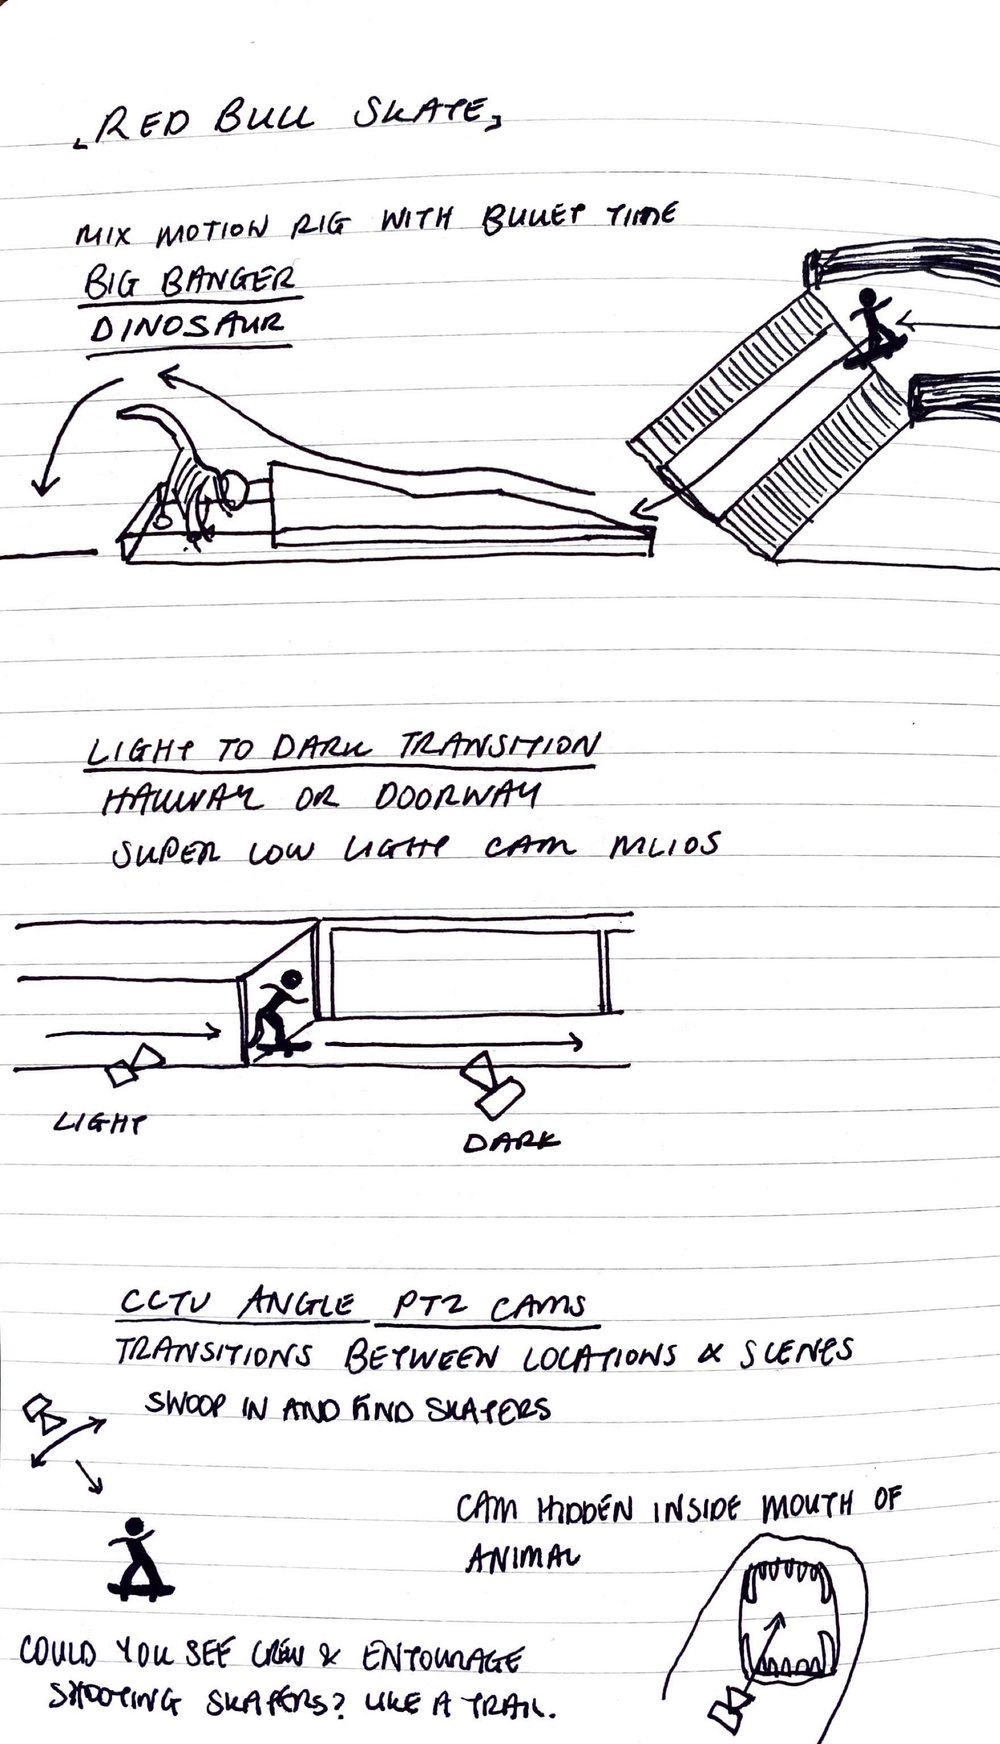 「RED BULL SKATE」
MIX MOTION RIG WITH BULLET TIME
BIG BANGER
DINOSAUR
LIGHT TO DARK TRANSITION
HALLWAY OR DOORWAY
SUPER LOW LIGHT CAM ML10S
LIGHT
DARK
CCTV ANGLE PTZ CAMS
TRANSITIONS BETWEEN LOCATIONS & SCENES
SWOOP IN AND FIND SKATERS
CAM HIDDEN INSIDE MOUTH OF
ANIMAL
COULD YOU SEE CREW & ENTOURAGE
SHOOTING SKATERS? LIKE A TRAIL.